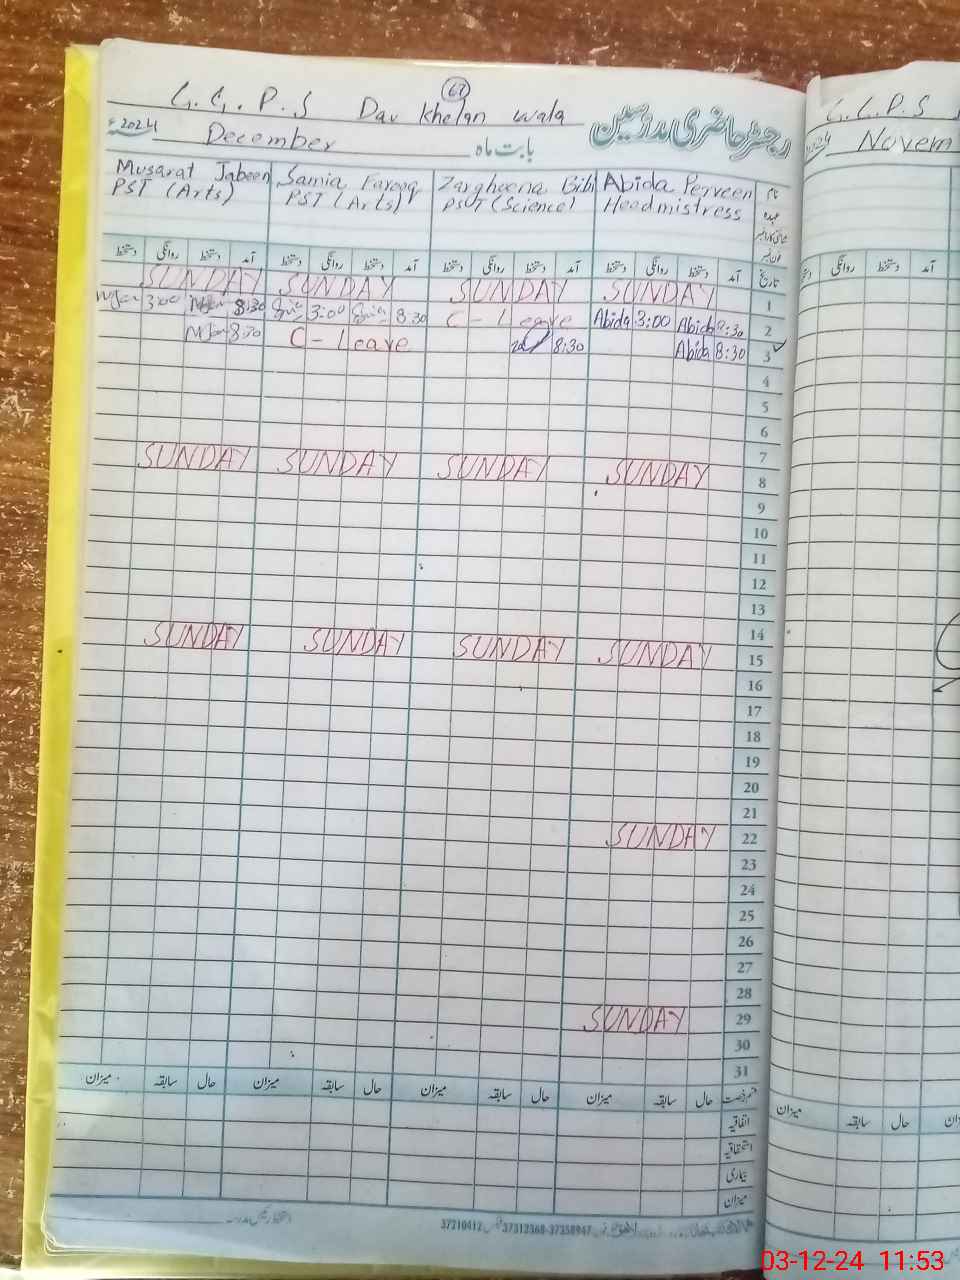 67
G.G.P.S Dav Khelan wala
رجسٹر حاضری مدرسین
بابت ماہ December 2024ء
Musarat Jabeen Samia Farooq Zarghoona Bibi Abida Perveen نام
PST (Arts) PST (Arts) PST (Science) Headmistress عہدہ
دستخط روانگی دستخط آمد دستخط روانگی دستخط آمد دستخط روانگی دستخط آمد دستخط روانگی دستخط آمد تاریخ
SUNDAY SUNDAY SUNDAY SUNDAY 1
3:00 8:30 3:00 8:30 C-Leave Abida 3:00 Abida 8:30 2
8:30 C-Leave 8:30 Abida 8:30 3
4
5
6
7
SUNDAY SUNDAY SUNDAY SUNDAY 8
9
10
11
12
13
14
SUNDAY SUNDAY SUNDAY SUNDAY 15
16
17
18
19
20
21
SUNDAY 22
23
24
25
26
27
28
SUNDAY 29
30
31
میزان سابقہ حال میزان سابقہ حال میزان سابقہ حال میزان سابقہ حال قسم رخصت
اتفاقیہ
استحقاقیہ
بیماری
میزان
37310412 37312368-37358947
G.G.P.S
2024 Novem
روانگی دستخط آمد
میزان سابقہ حال
03-12-24 11:53